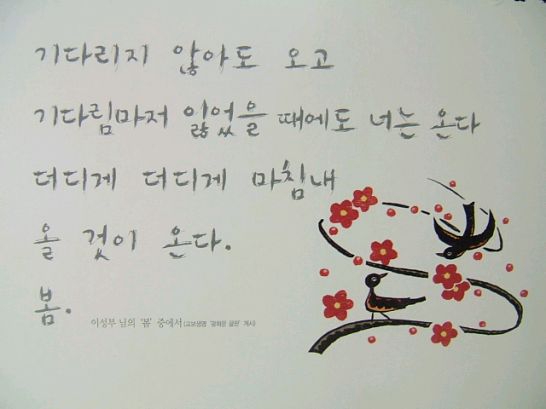 기다리지 않아도 오고
기다림마저 잃었을 때에도 너는 온다
더디게 더디게 마침내
올 것이 온다.
봄.
이성부 님의 '봄' 중에서 (교보생명 '광화문 글판' 게시)